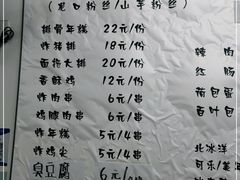 (龙口粉丝/山芋粉丝)
排骨年糕 22元/份
炸猪排 18元/份
面拖大排 20元/份
香酥鸡 12元/份
炸肉串 6元/4串
鸡腿肉串 6元/4串
炸年糕 5元/4串
炸鸡尖 5元/4串
臭豆腐 6元/
辣肉
红肠
荷包蛋
百叶包
北冰洋
可乐/